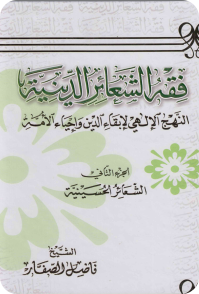 فقه الشعائر الدينية
النهج الإلهي لإبقاء الدين وإحياء الأمة
الجزء الثاني
الشعائر الحسينية
الشيخ
فاضل الصفار